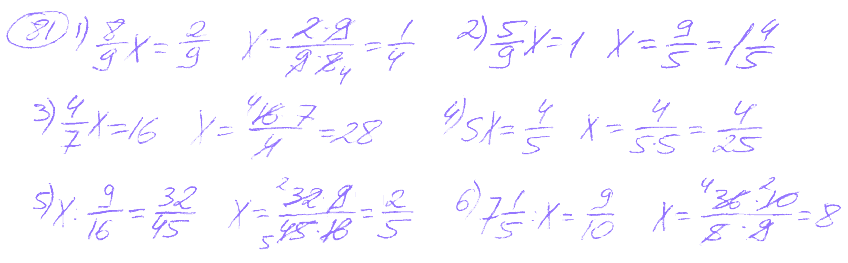 81 1) 8/9 X = 2/9 X = 2·9/9·8 4 = 1/4 2) 5/9 X = 1 X = 9/5 = 1 4/5
3) 4/7 X = 16 X = 4 16 7/4 = 28 4) 5X = 4/5 X = 4/5·5 = 4/25
5) X · 9/16 = 32/45 X = 2 32·9/5 45·16 = 2/5 6) 7 1/5 · X = 9/10 X = 4 36·2 10/5·9 = 8